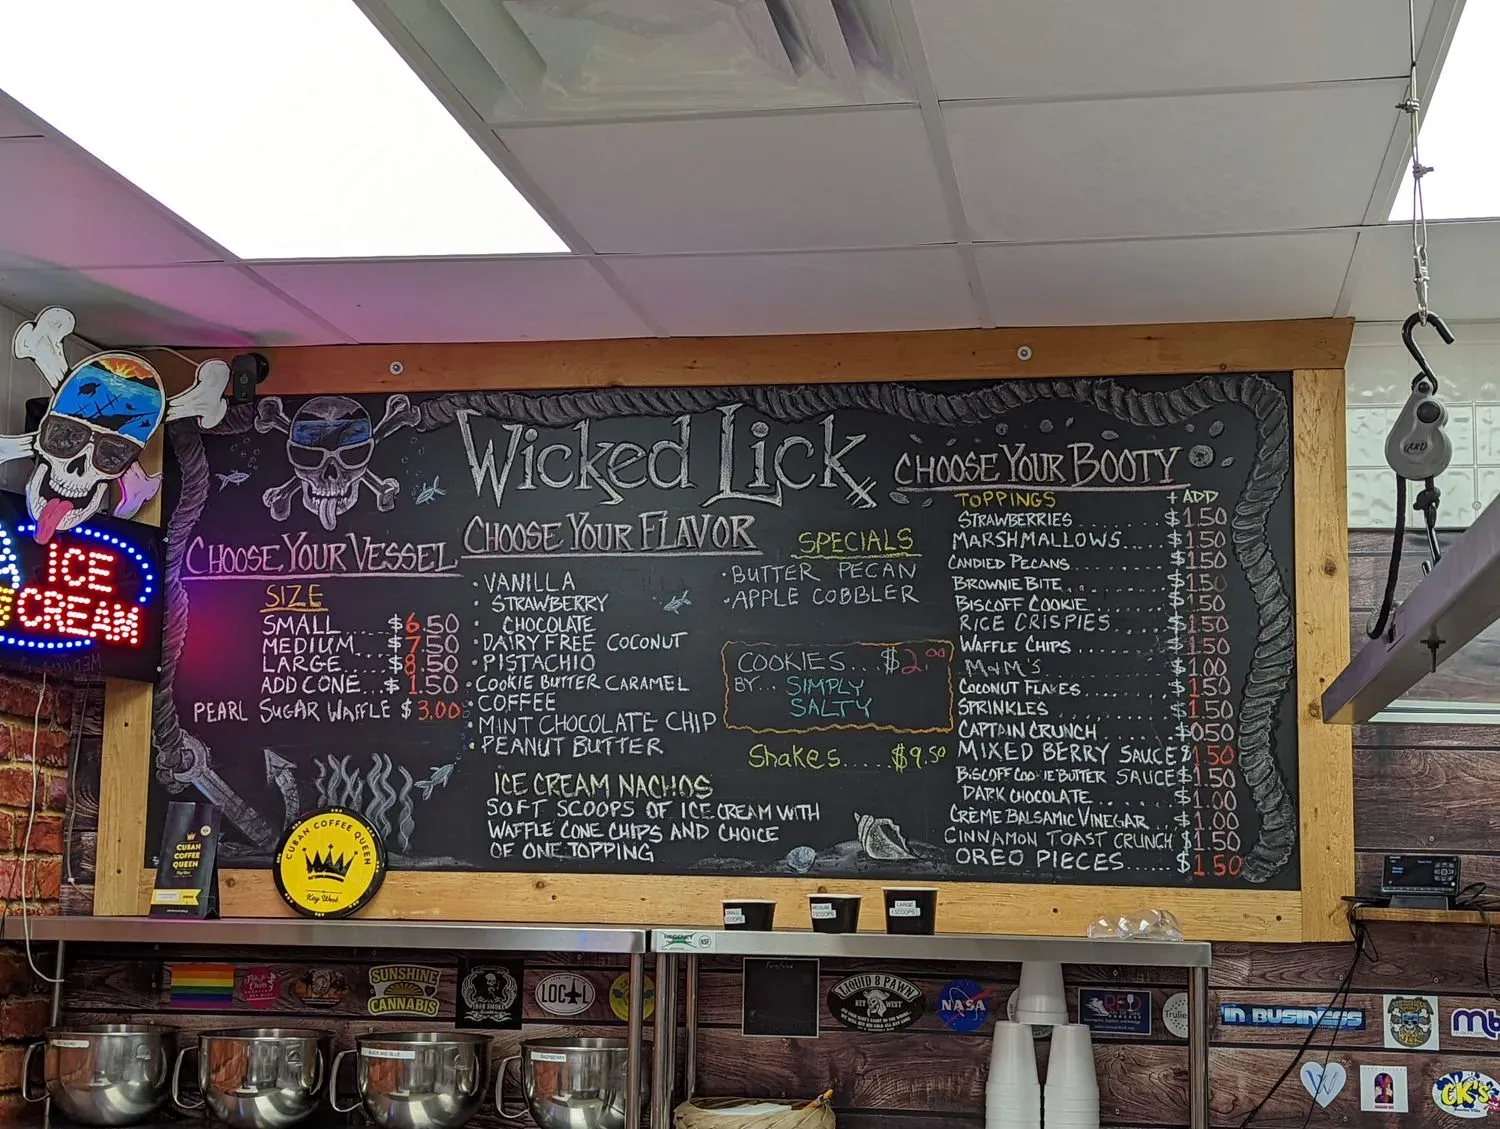 Wicked Lick
CHOOSE YOUR VESSEL
SIZE
SMALL....$6.50
MEDIUM....$7.50
LARGE....$8.50
ADD CONE...$1.50
PEARL SUGAR WAFFLE $3.00
CHOOSE YOUR FLAVOR
• VANILLA
• STRAWBERRY
• CHOCOLATE
• DAIRY FREE COCONUT
• PISTACHIO
• COOKIE BUTTER CARAMEL
• COFFEE
• MINT CHOCOLATE CHIP
• PEANUT BUTTER
ICE CREAM NACHOS
SOFT SCOOPS OF ICE CREAM WITH
WAFFLE CONE CHIPS AND CHOICE
OF ONE TOPPING
SPECIALS
• BUTTER PECAN
• APPLE COBBLER
COOKIES...$2.00
BY... SIMPLY
SALTY
Shakes.....$9.50
CHOOSE YOUR BOOTY
TOPPINGS + ADD
STRAWBERRIES........$1.50
MARSHMALLOWS....$1.50
CANDIED PECANS........$1.50
BROWNIE BITE........$1.50
BISCOFF COOKIE........$1.50
RICE CRISPIES......$1.50
WAFFLE CHIPS........$1.50
M&M'S........$1.00
COCONUT FLAKES........$1.50
SPRINKLES........$1.50
CAPTAIN CRUNCH......$0.50
MIXED BERRY SAUCE $1.50
BISCOFF COOKIE BUTTER SAUCE $1.50
DARK CHOCOLATE........$1.00
CRÈME BALSAMIC VINEGAR..$1.00
CINNAMON TOAST CRUNCH $1.50
OREO PIECES......$1.50
ICE
CREAM
CUBAN
COFFEE
QUEEN
CUBAN COFFEE QUEEN
Key West
SMALL
SCOOPS
MEDIUM
SCOOPS
LARGE
SCOOPS
NSF
SUNSHINE
CANNABIS
LOCAL
LIQUID 8 PAWN
KEY WEST
NASA
RED
Trulie
IN BUSINESS
mb
W
CK's
PISTACHIO
BLACK AND BLUE
RASPBERRY